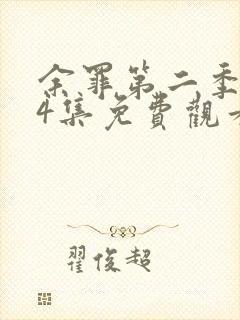 余罪第二季
4集免費觀看
翟俊超